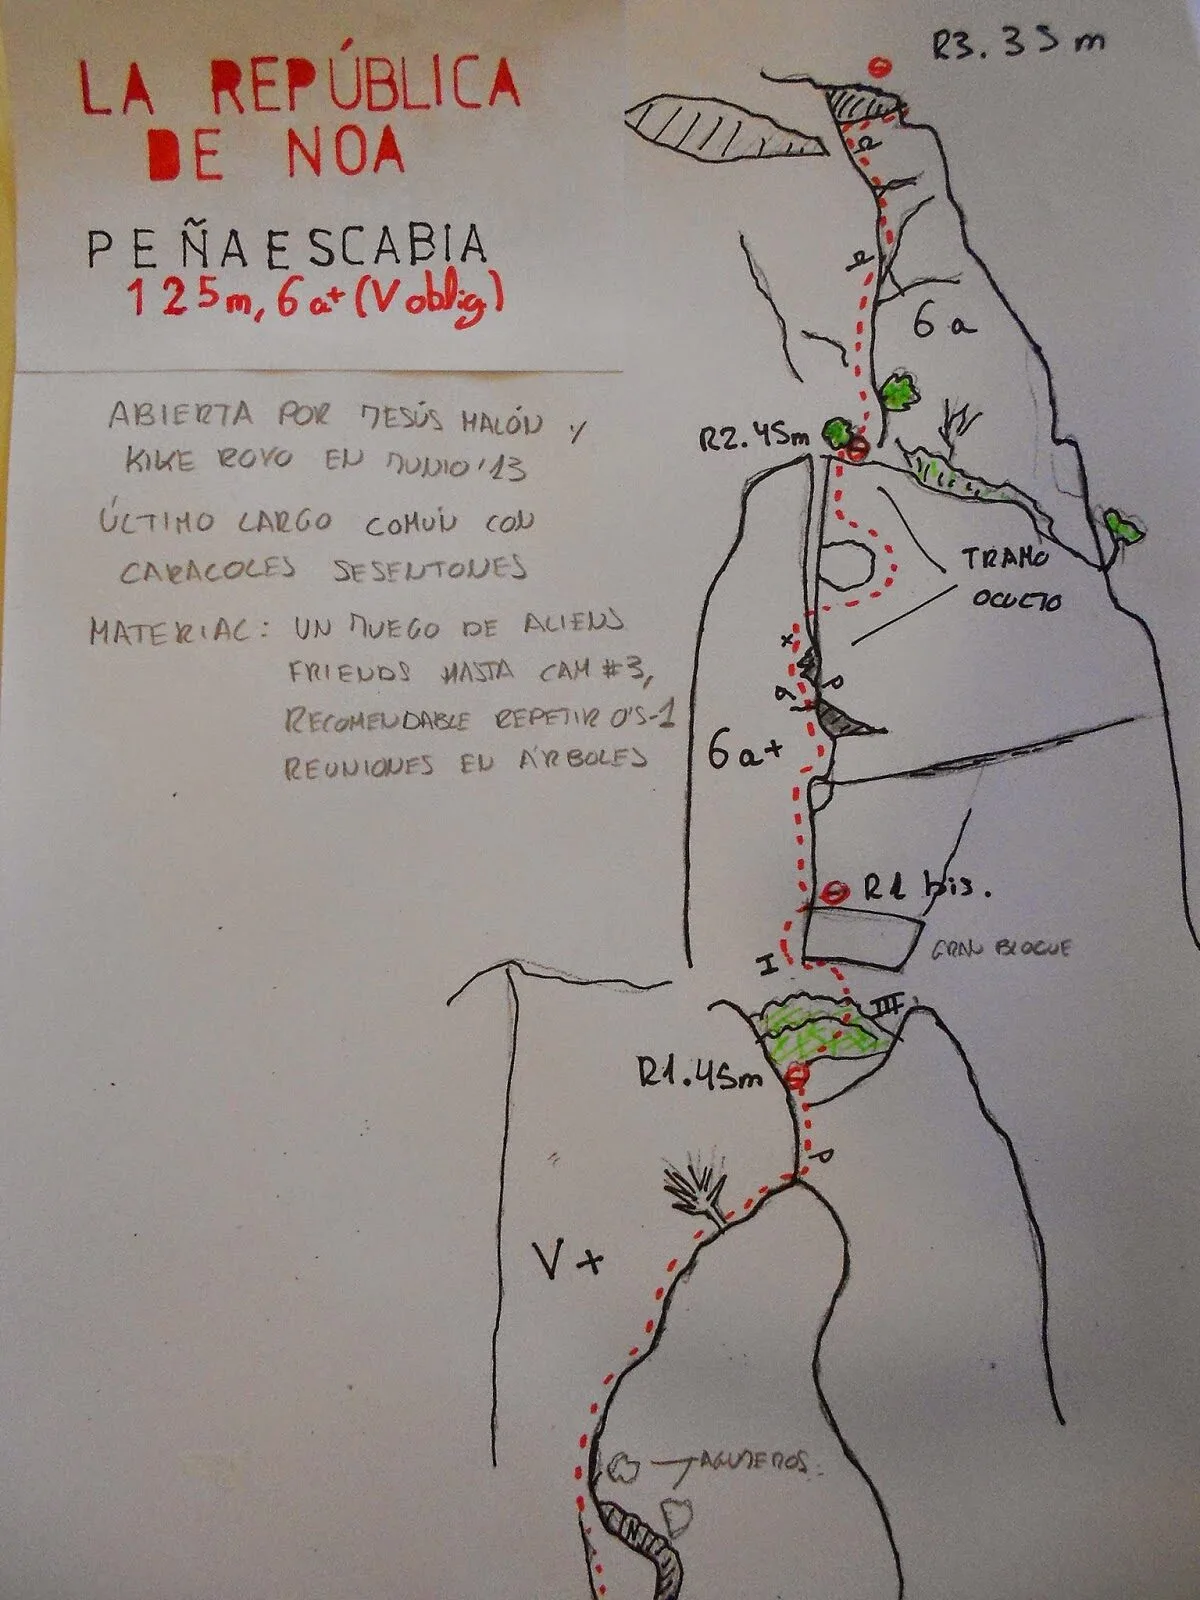 LA REPÚBLICA
DE NOA
PEÑAESCABIA
125m, 6a+ (V oblig)
ABIERTA POR JESÚS MALÓN Y
KIKE ROYO EN JUNIO '13
ÚLTIMO LARGO COMÚN CON
CARACOLES SESENTONES
MATERIAL: UN JUEGO DE ALIENS
FRIENDS HASTA CAM #3,
RECOMENDABLE REPETIR 0'5-1
REUNIONES EN ÁRBOLES
R3. 35m
6a
R2. 45m
TRAMO
OCULTO
6a+
R1 bis.
GRAN BLOQUE
I
III
R1. 45m
V+
AGUJEROS